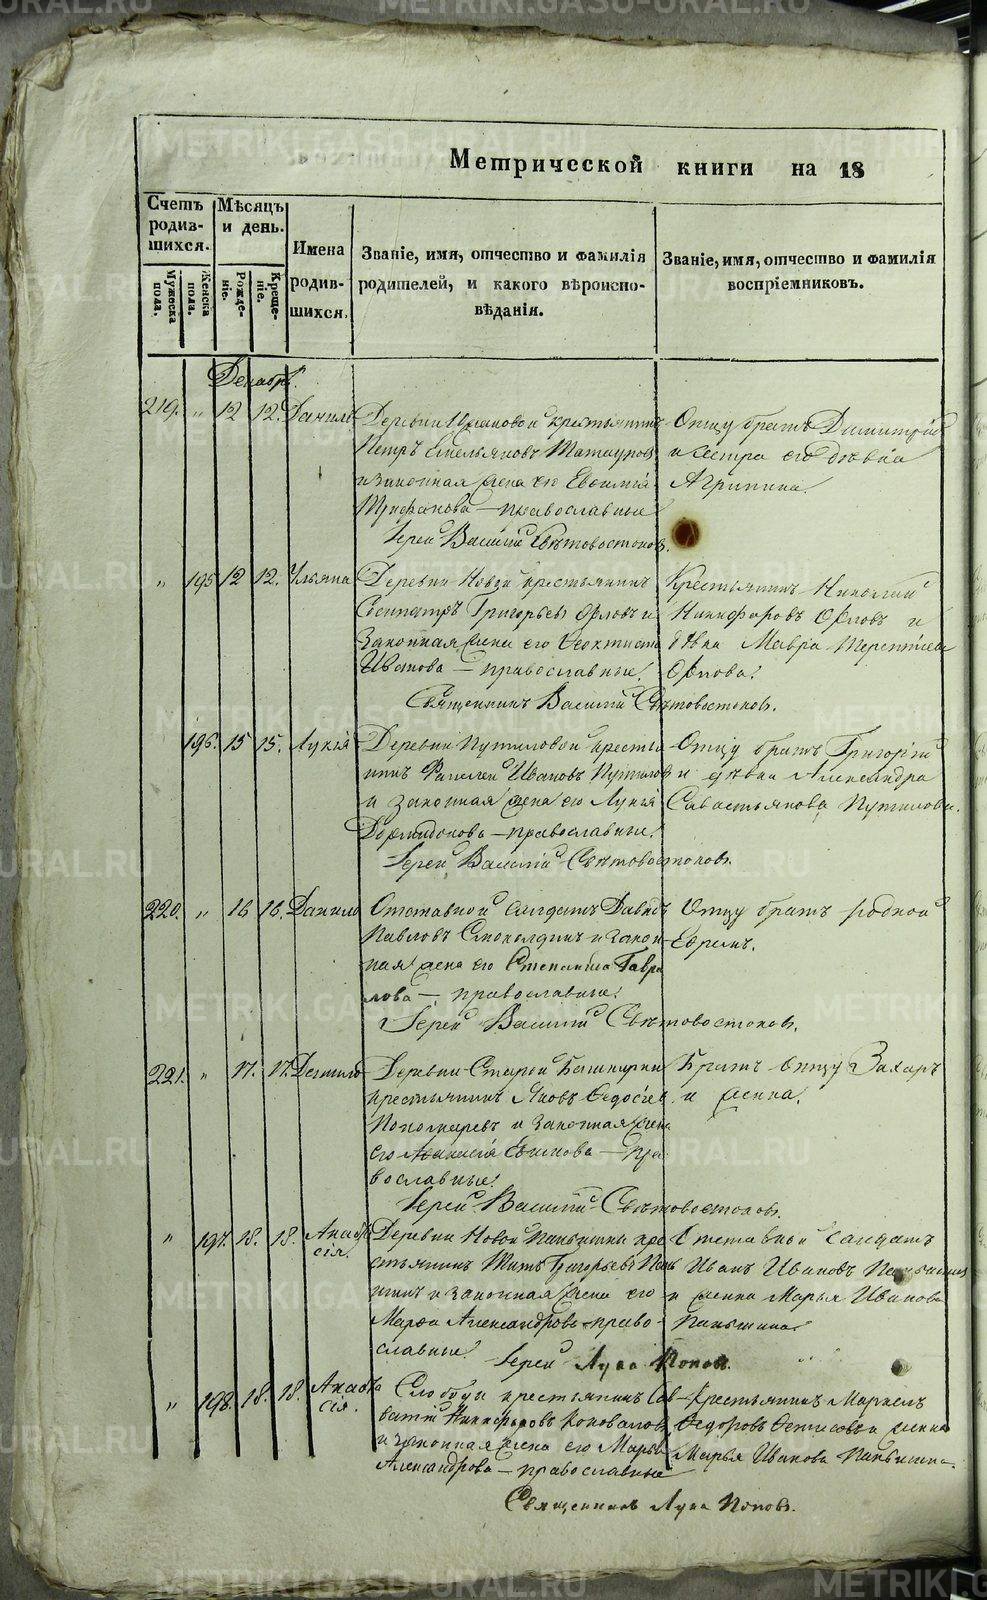 Метрической книги на 18
Счетъ родившихся.
Мужеска пола.
Женска пола.
Мѣсяцъ и день.
Рожденіе.
Крещеніе.
Имена родившихся.
Званіе, имя, отчество и фамилія
родителей, и какого вѣроиспо-
вѣданія.
Званіе, имя, отчество и фамилія
воспріемниковъ.
Декабрь.
219. " 12 12. Данило
Деревни крестьянинъ
Петръ Емельяновъ
и законная жена его Евфимія
Трифанова — православные
Іерей Василій Свѣтовостоковъ.
Отцу братъ Димитрій
и сестра его дѣвка
Агрипина.
" 195 12 12. Ульяна
Деревни Новой крестьянинъ
Сосипатръ Григорьевъ Орловъ и
законная жена его Феоктиста
Иванова — православные.
Священникъ Василій Свѣтовостоковъ.
Крестьянинъ Николай
Никифоровъ Орловъ и
дѣвка Мавра Терентьева
Орлова.
196. 15 15. Лукія
Деревни Путиловой крестья-
нинъ Ивановъ Путиловъ
и законная жена его Лукія
Дормидонова — православные.
Іерей Василій Свѣтовостоковъ.
Отцу братъ Григорій
и дѣвка Александра
Савастьянова Путилова.
220. " 16 16. Данило
Отставной салдатъ Давидъ
Павловъ и закон-
ная жена его Степанида Гаври-
лова — православные.
Іерей Василій Свѣтовостоковъ.
Отцу братъ родной
Ефремъ.
221. " 17. 17. Данило
Деревни Старой Башкарки
крестьянинъ Яковъ Федосѣевъ
Пономаревъ и законная жена
его — пра-
вославные.
Іерей Василій Свѣтовостоковъ.
Братъ отцу Захаръ
и жена.
" 197. 18. 18. Анастасія.
Деревни Новой Паньшины кре-
стьянинъ Титъ Григорьевъ Пань-
шинъ и законная жена его
Марфа Александрова — право-
славные.
Іерей Лука Поповъ.
Отставной салдатъ
Иванъ Ивановъ Паньшинъ
и жена Марья Иванова
Паньшина.
" 198. 18. 18. Анастасія.
Слободы крестьянинъ Сав-
ватій Никифоровъ Коноваловъ
и законная жена его Марья
Александрова — православные
Священникъ Лука Поповъ.
Крестьянинъ Маркелъ
Федоровъ и жена
Марья Иванова Паньшина.
METRIKI.GASO-URAL.RU